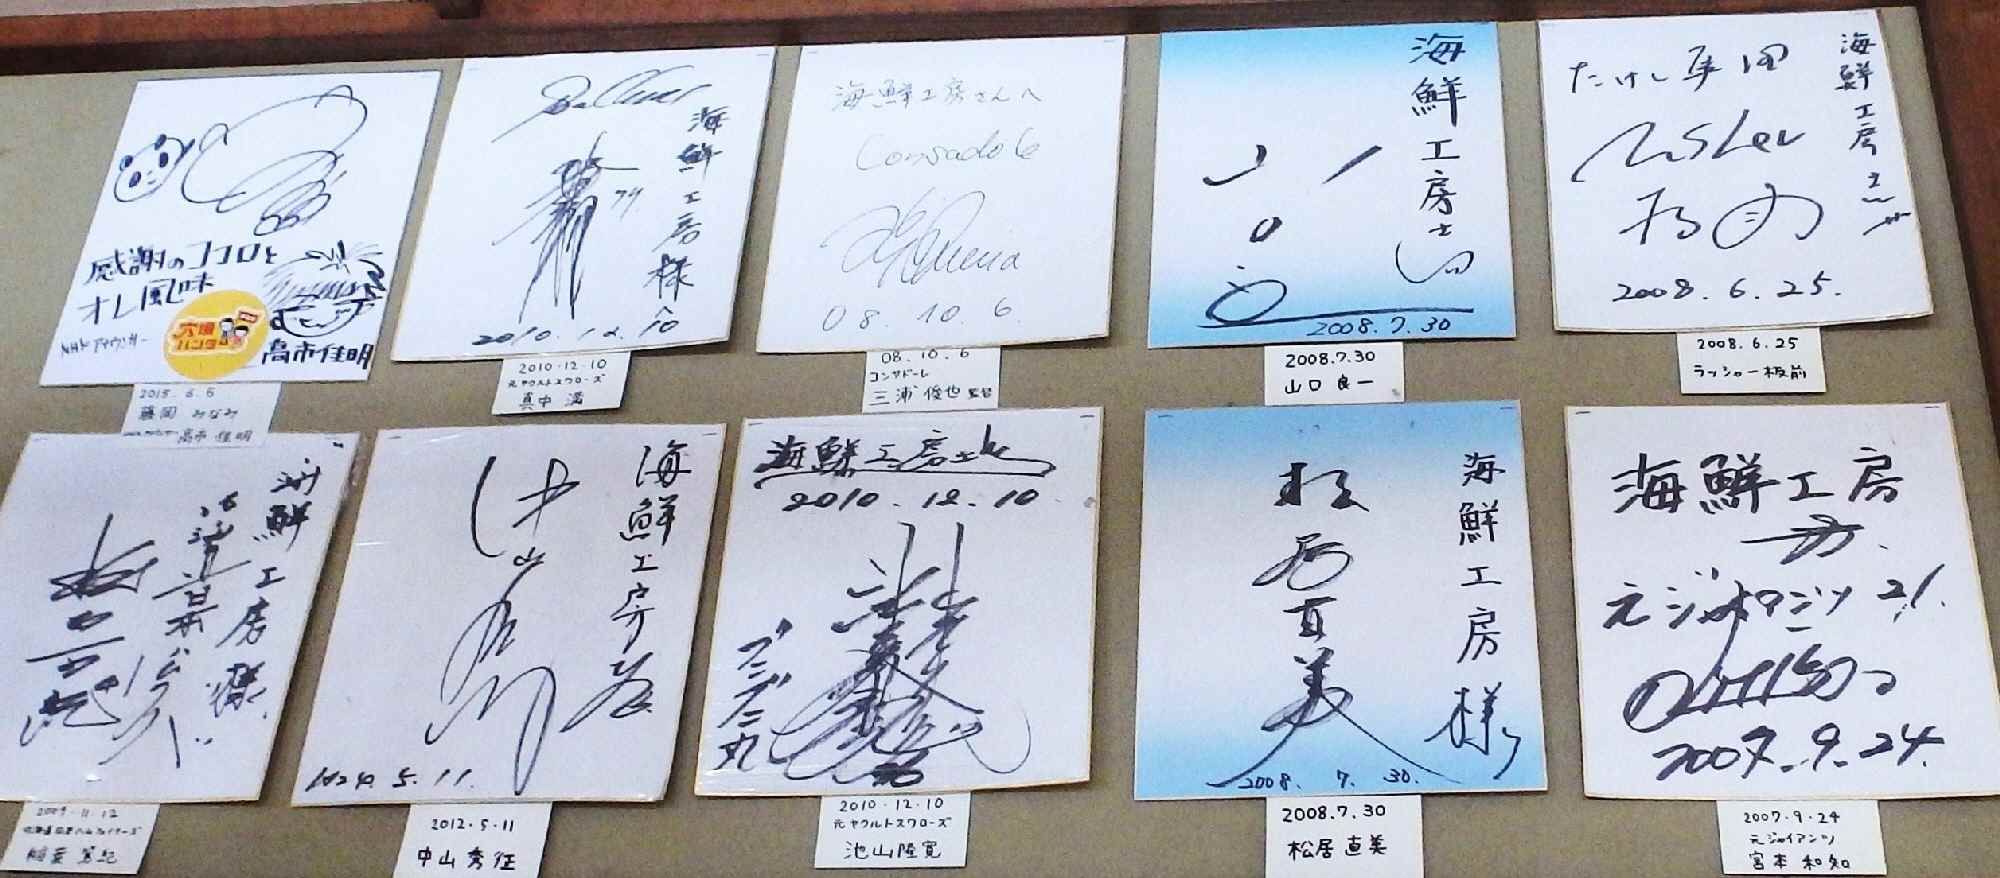 感謝のココロと
オレ風味
NHKアナウンサー
穴場
ハンター
高市佳明
2015.6.5
藤岡 みなみ
高市 佳明
海鮮工房様へ
2010.12.10
2010.12.10
元ヤクルトスワローズ
真中 満
海鮮工房さんへ
Consadole
08.10.6
08.10.6
コンサドーレ
三浦 俊也 監督
海鮮工房さん
山口良一
2008.7.30
2008.7.30
山口 良一
海鮮工房さん
たけし軍団
2008.6.25.
2008.6.25
ラッシャー板前
海鮮工房様
2009.11.12
北海道日本ハムファイターズ
稲葉 篤紀
海鮮工房
H24.5.11.
2012.5.11
中山 秀征
海鮮工房さん江
2010.12.10
ブンブン丸
2010.12.10
元ヤクルトスワローズ
池山 隆寛
海鮮工房様
松居直美
2008.7.30.
2008.7.30
松居 直美
海鮮工房
元ジャイアンツ
2007.9.24.
2007.9.24
元ジャイアンツ
宮本 和知